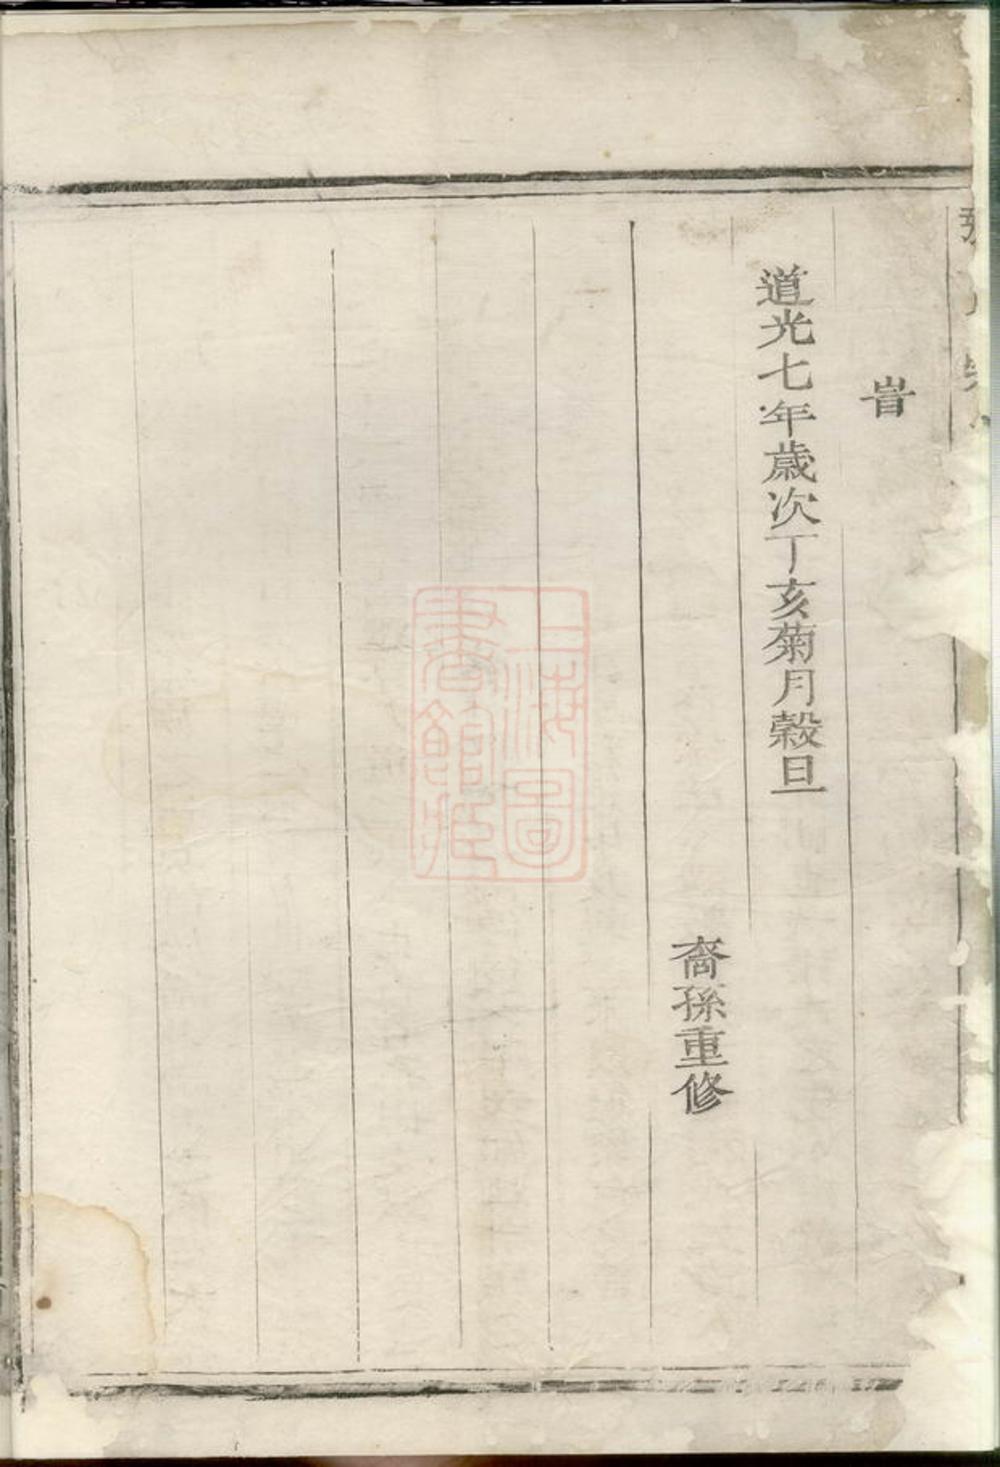 旹
道光七年歲次丁亥菊月榖旦
裔孫重修
上海圖
書館藏